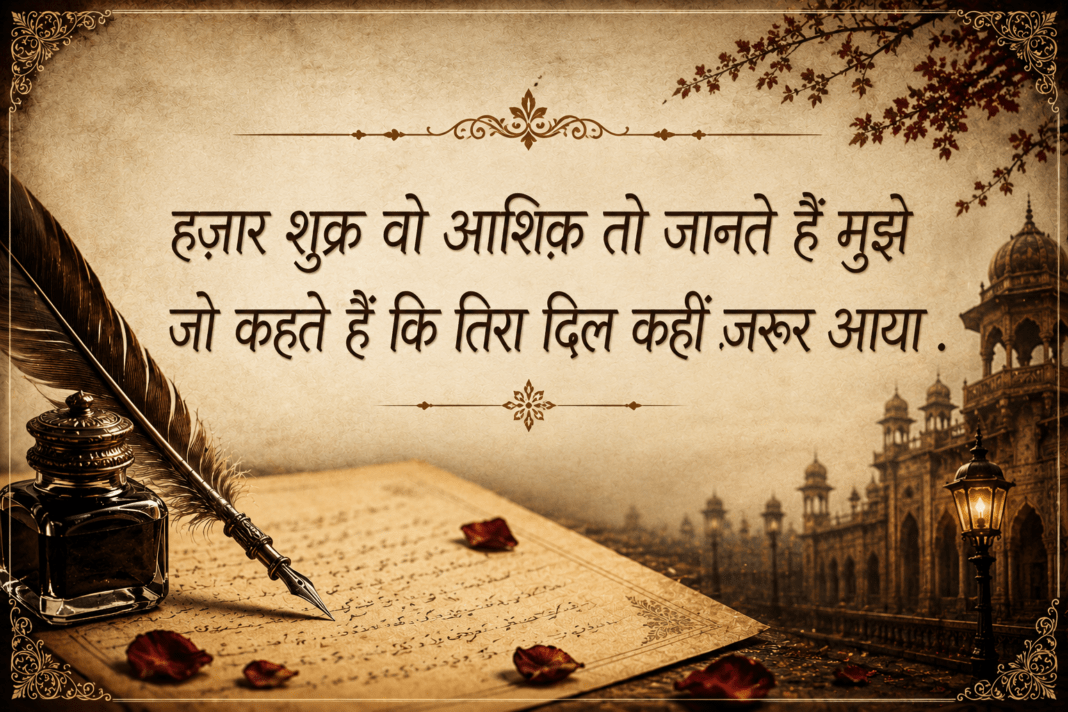 हज़ार शुक्र वो आशिक़ तो जानते हैं मुझे
जो कहते हैं कि तिरा दिल कहीं ज़रूर आया .